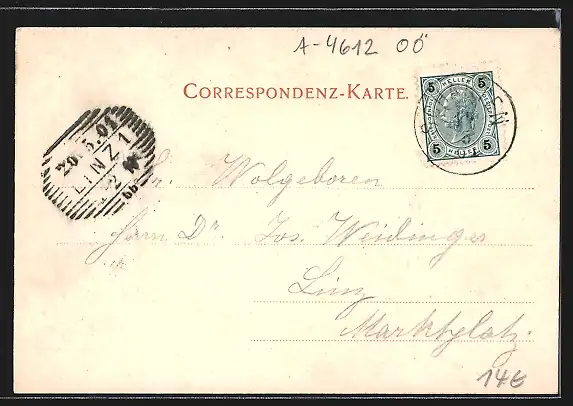 A-4612 OÖ
CORRESPONDENZ-KARTE.
5 HELLER 5
5 HELLER 5
LINZ 1
Sr. Wolgeboren
Herrn Dr. Jos. Weidinger
Linz
Marktplatz.
14€